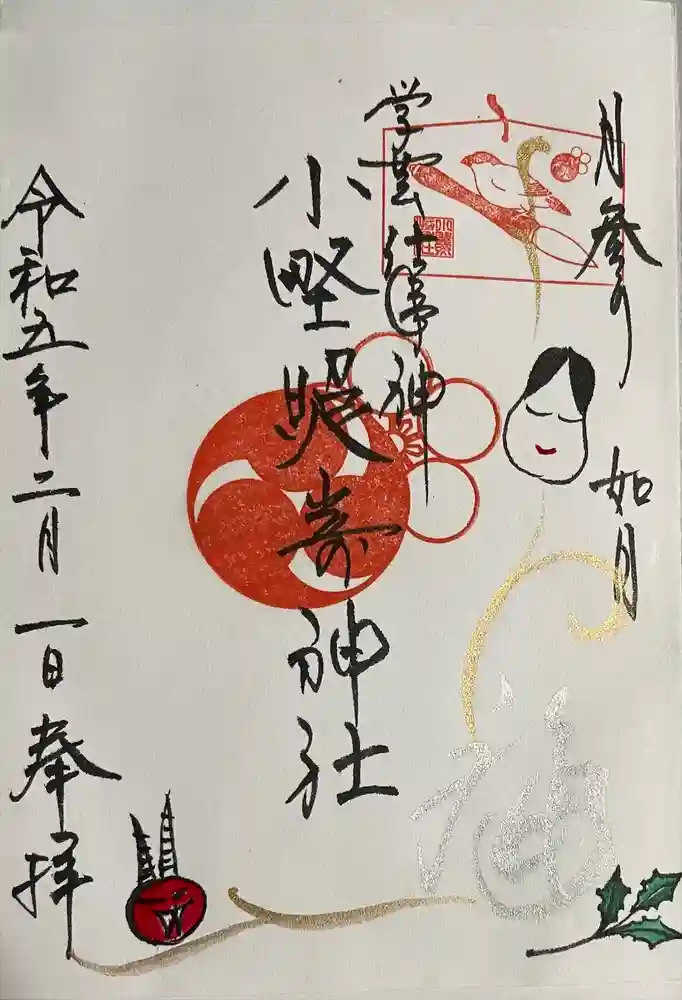 月参り 如月
福
学芸仕事神
小野照崎神社
令和五年二月一日奉拝